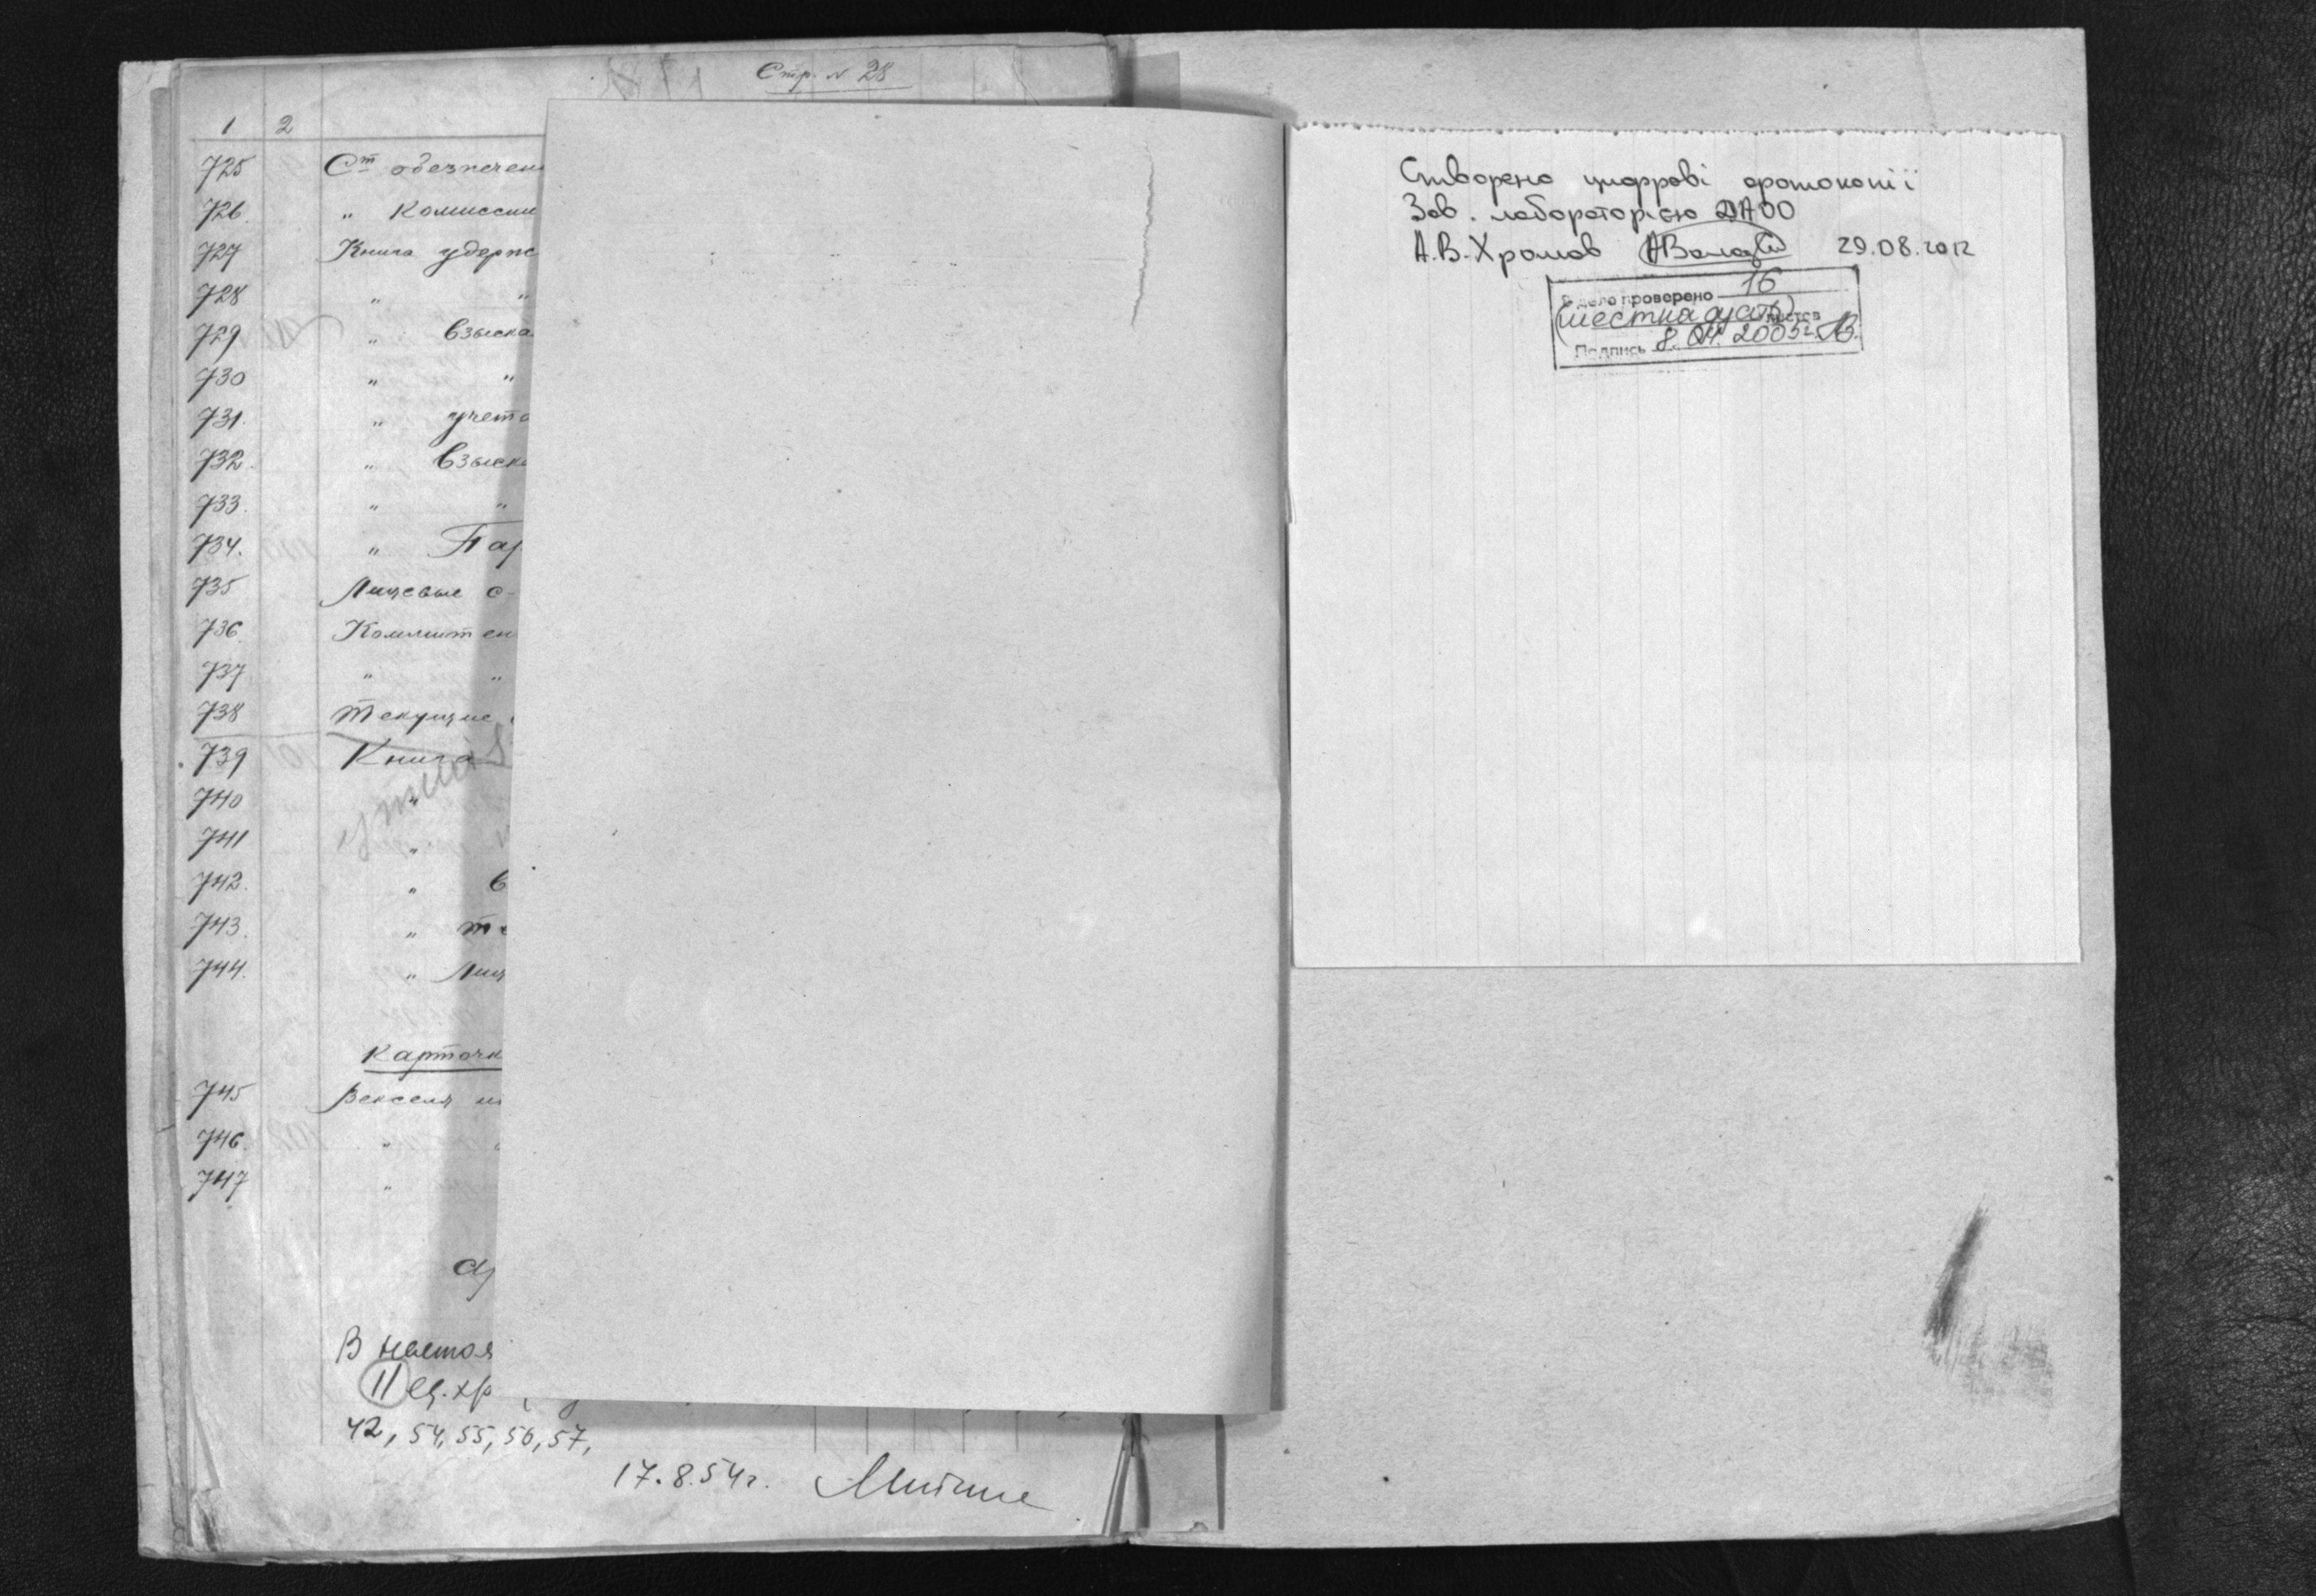 Стр. № 28
1 2
725 Ст обезпечен
726. " Комиссии
727 Книга удерж
728 " "
729 " Взыска
730 " "
731. " учета
732. " Взыск
733. " "
734. " Пар
735 Лицевые с
736. Комитен
737 " "
738 Текущие
739 Книга
740 "
741 "
742. " в
743. " те
744. " Лиц
Карточк
745 Векселя
746. "
747 "
В настоя
11 ед. хр
42, 54, 55, 56, 57,
17.8.54г.
Створено цифрові фотокопії
Зав. лабораторією ДАОО
А.В. Хромов 29.08.2012
В дело проверено 16
(шестнадцать) листов
Подпись 8.04.2005г.